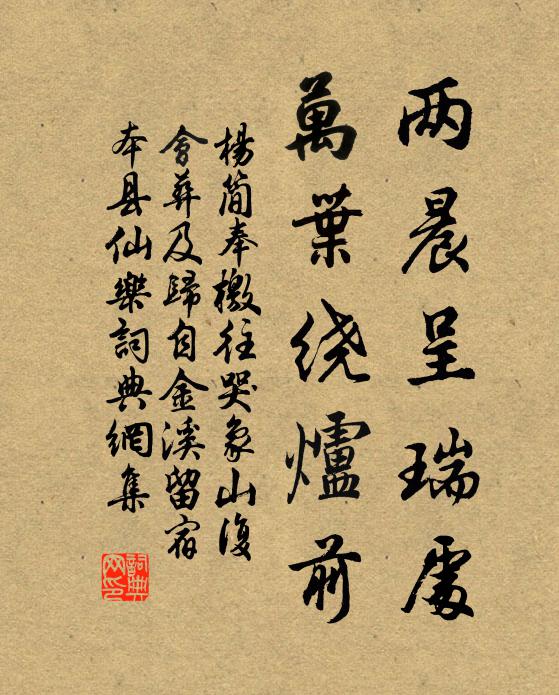 两晨呈瑞處
萬葉绕爐前
楊简奉檄往哭象山復
會葬及歸自金溪留宿
本县仙樂詞典網集
詞典
网印